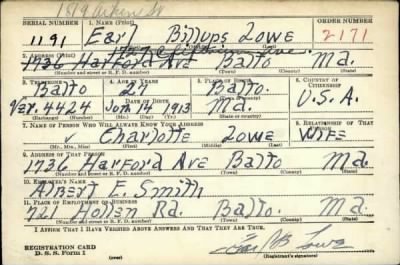 1819 Aiken St
SERIAL NUMBER 1. NAME (Print) ORDER NUMBER
1191 Earl Billups Lowe 2171
2. ADDRESS (Print)
1736 Harford Ave Balto Md.
(Number and street or R. F. D. number) (Town) (County) (State)
3. TELEPHONE 4. AGE IN YEARS 5. PLACE OF BIRTH 6. COUNTRY OF CITIZENSHIP
Balto Balto
DATE OF BIRTH
Ver. 4424 Jan 14 1913 Md. U.S.A.
(Exchange) (Number) (Mo.) (Day) (Yr.) (State or country)
7. NAME OF PERSON WHO WILL ALWAYS KNOW YOUR ADDRESS 8. RELATIONSHIP OF THAT PERSON
Charlotte Lowe Wife
(Mr., Mrs., Miss) (First) (Middle) (Last)
9. ADDRESS OF THAT PERSON
1736 Harford Ave Balto Md.
(Number and street or R. F. D. number) (Town) (County) (State)
10. EMPLOYER'S NAME
Albert E. Smith
11. PLACE OF EMPLOYMENT OR BUSINESS
721 Hollen Rd. Balto. Md.
(Number and street or R. F. D. number) (Town) (County) (State)
I AFFIRM THAT I HAVE VERIFIED ABOVE ANSWERS AND THAT THEY ARE TRUE.
REGISTRATION CARD
D. S. S. Form 1
Earl B Lowe
(Registrant's signature)